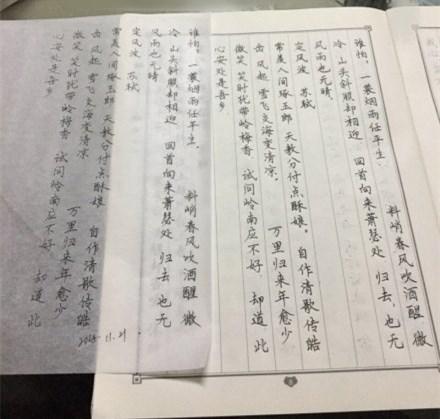 谁怕,一蓑烟雨任平生. 料峭春风吹酒醒 微
冷 山头斜照却相迎 回首向来萧瑟处 归去,也无
风雨也无晴。
定风波 苏轼
常羡人间琢玉郎 天教分付点酥娘。自作清歌传皓
齿 风起 雪飞炎海变清凉。 万里归来年愈少
微笑 笑时犹带岭梅香 试问岭南应不好 却道 此
心安处是吾乡
谁怕,一蓑烟雨任平生. 料峭春风吹酒醒 微
冷 山头斜照却相迎 回首向来萧瑟处 归去 也无
风雨也无晴
定风波 苏轼
常羡人间琢玉郎 天教分付点酥娘 自作清歌传皓
齿 风起 雪飞炎海变清凉 万里归来年愈少
微笑 笑时犹带岭梅香 试问岭南应不好 却道此
心安处是吾乡